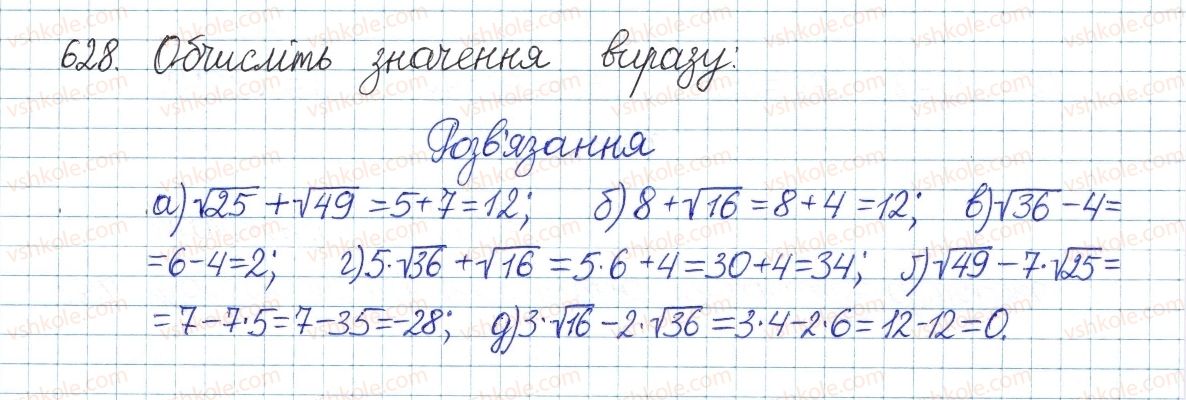 628. Обчисліть значення виразу:
Розв'язання
а) √25 + √49 = 5+7=12; б) 8 + √16 = 8+4 =12; в) √36 - 4=
=6-4=2; г) 5·√36 + √16 = 5·6 +4=30+4=34; ґ) √49 - 7·√25=
= 7-7·5=7-35=-28; д) 3·√16 - 2·√36 = 3·4-2·6= 12-12=0.
vshkole.com